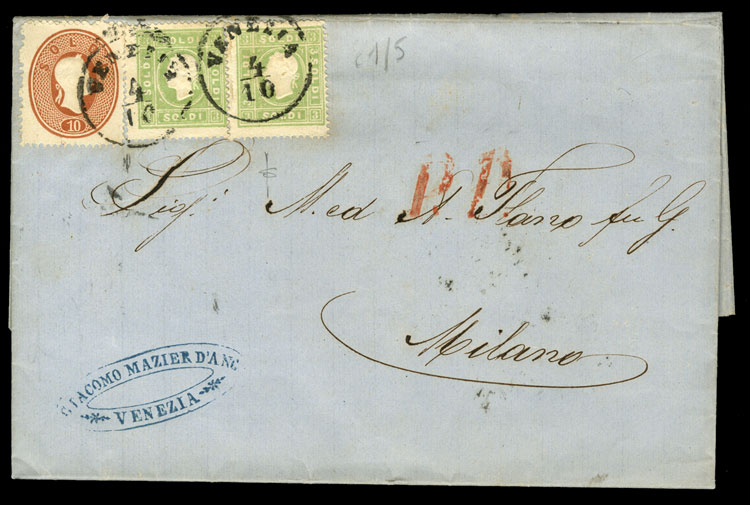 SOLDI
10
VENEZIA
4
10
3 SOLDI 3
VENEZIA
4
10
3 SOLDI 3
c1/5
P.D.
Sigr. M. ed A. fu G.
Milano
GIACOMO MAZIER D'ANG
VENEZIA